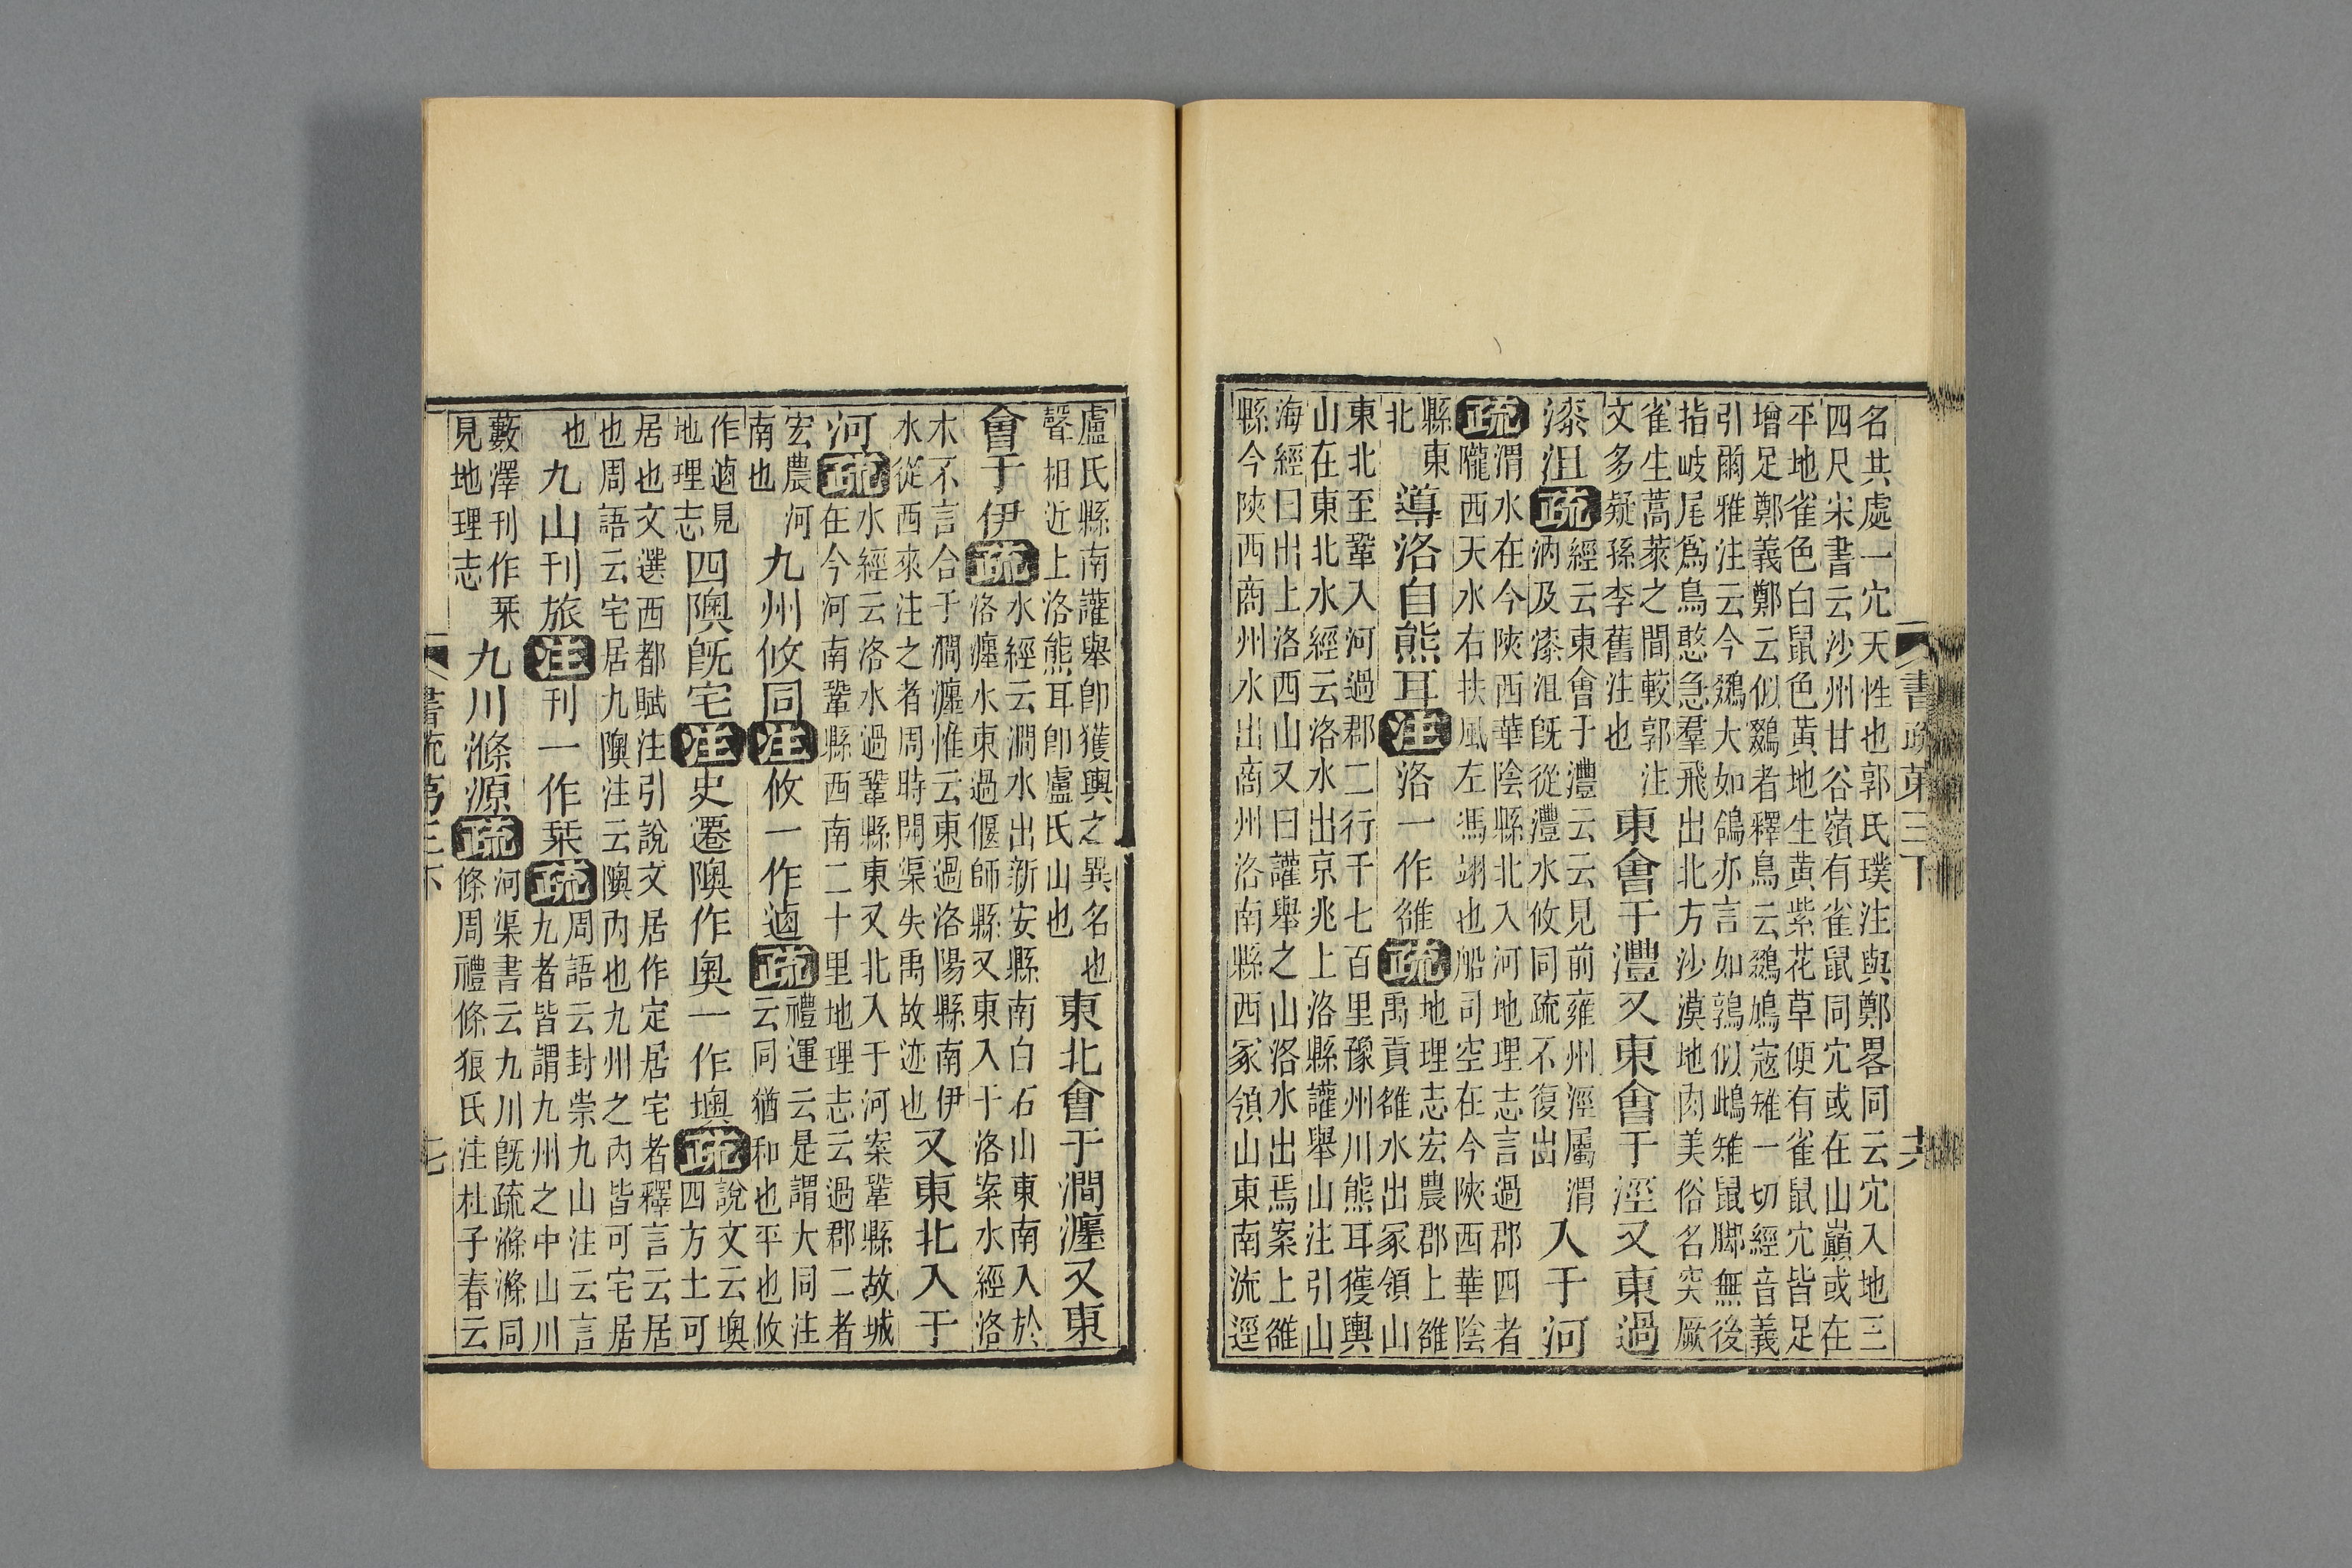 名共處一穴天性也郭氏璞注與鄭畧同云穴入地三
四尺宋書云沙州甘谷嶺有雀鼠同穴或在山巔或在
平地雀色白鼠色黃地生黃紫花草便有雀鼠穴皆足
增足鄭義鄭云似鵽者釋鳥云鵽鳩寇雉一切經音義
引爾雅注云今鵽大如鴿亦言如鶉似雌雉鼠脚無後
指岐尾爲鳥憨急羣飛出北方沙漠地肉美俗名突厥
雀生蒿萊之間較郭注
文多疑孫李舊注也
東會于灃又東會于涇又東過
漆沮疏
經云東會于灃云云見前雍州涇屬渭
汭及漆沮旣從灃水攸同疏不復出
入于河
疏
渭水在今陝西華陰縣北入河地理志言過郡四者
隴西天水右扶風左馮翊也船司空在今陝西華陰
縣東
北
導洛自熊耳注洛一作雒疏
地理志宏農郡上雒
禹貢雒水出冢領山
東北至鞏入河過郡二行千七百里豫州川熊耳獲輿
山在東北水經云洛水出京兆上洛縣讙舉山注引山
海經曰出上洛西山又曰讙舉之山洛水出焉案上雒
縣今陝西商州水出商州洛南縣西冢領山東南流逕
書疏第三下
共
盧氏縣南讙舉卽獲輿之異名也
聲相近上洛熊耳卽盧氏山也
東北會于澗瀍又東
會于伊疏
水經云澗水出新安縣南白石山東南入於
洛瀍水東過偃師縣又東入于洛案水經洛
水不言合于澗瀍惟云東過洛陽縣南伊
水從西來注之者周時開渠失禹故迹也
又東北入于
河疏
水經云洛水過鞏縣東又北入于河案鞏縣故城
在今河南鞏縣西南二十里地理志云過郡二者
宏農河
南也
九州攸同注攸一作逌疏
禮運云是謂大同注
云同猶和也平也攸
作逌見
地理志
四隩旣宅注史遷隩作奧一作墺疏
說文云墺
四方土可
居也文選西都賦注引說文居作定居宅者釋言云居
也周語云宅居九隩注云隩內也九州之內皆可宅居
也
九山刊旅注刊一作栞疏
周語云封崇九山注云言
九者皆謂九州之中山川
藪澤刊作栞
見地理志
九川滌源疏
河渠書云九川旣疏滌滌同
條周禮條狼氏注杜子春云
書疏第三下
七